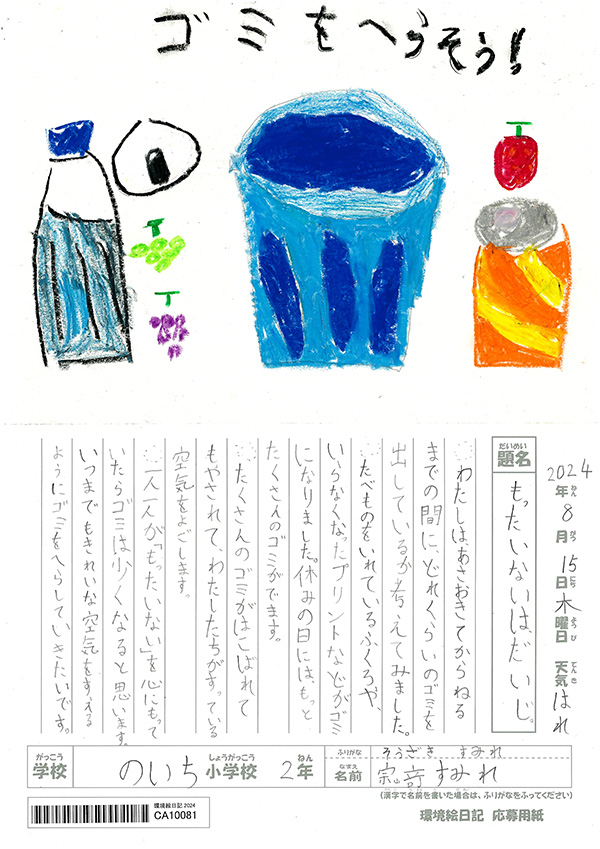 ゴミをへらそう!
2024年8月15日木曜日 天気はれ
ねん がつ にち ようび てんき
だいめい
題名 もったいないは、だいじ。
わたしは、あさおきてからねる
までの間に、どれくらいのゴミを
出しているか考えてみました。
たべものをいれているふくろや、
いらなくなったプリントなどがゴミ
になりました。休みの日には、もっと
たくさんのゴミができます。
たくさんのゴミがはこばれて
もやされて、わたしたちがすっている
空気をよごします。
一人一人が「もったいない」を心にもって
いたらゴミは少くなると思います。
いつまでもきれいな空気をすえる
ようにゴミをへらしていきたいです。
がっこう しょうがっこう ねん
学校 のいち小学校 2年
ふりがな そうざき すみれ
なまえ
名前 すみれ
(漢字で名前を書いた場合は、ふりがなをふってください)
環境絵日記 2024
CA10081
環境絵日記 応募用紙